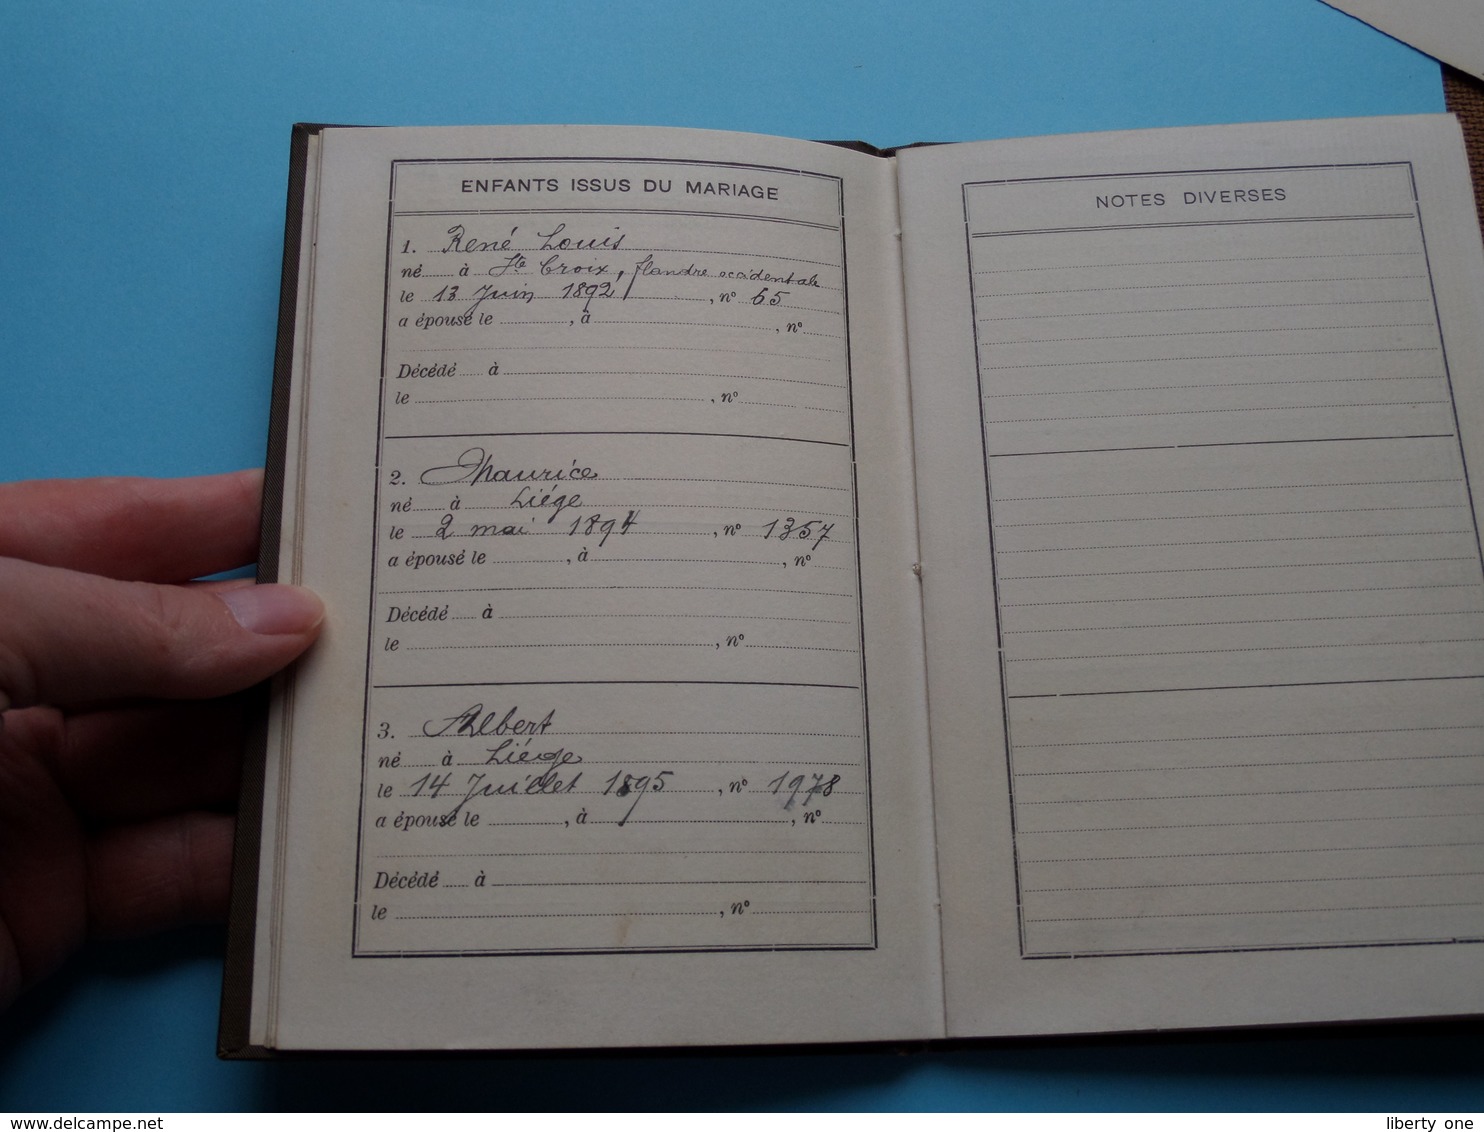 ENFANTS ISSUS DU MARIAGE
1. René Louis
né à Ste Croix, flandre occidentale
le 13 Juin 1892, n° 65
a épousé le , à , n°
Décédé à
le , n°
2. Maurice
né à Liége
le 2 mai 1894, n° 1357
a épousé le , à , n°
Décédé à
le , n°
3. Albert
né à Liége
le 14 Juillet 1895, n° 1978
a épousé le , à , n°
Décédé à
le , n°
NOTES DIVERSES
www.delcampe.net
liberty one